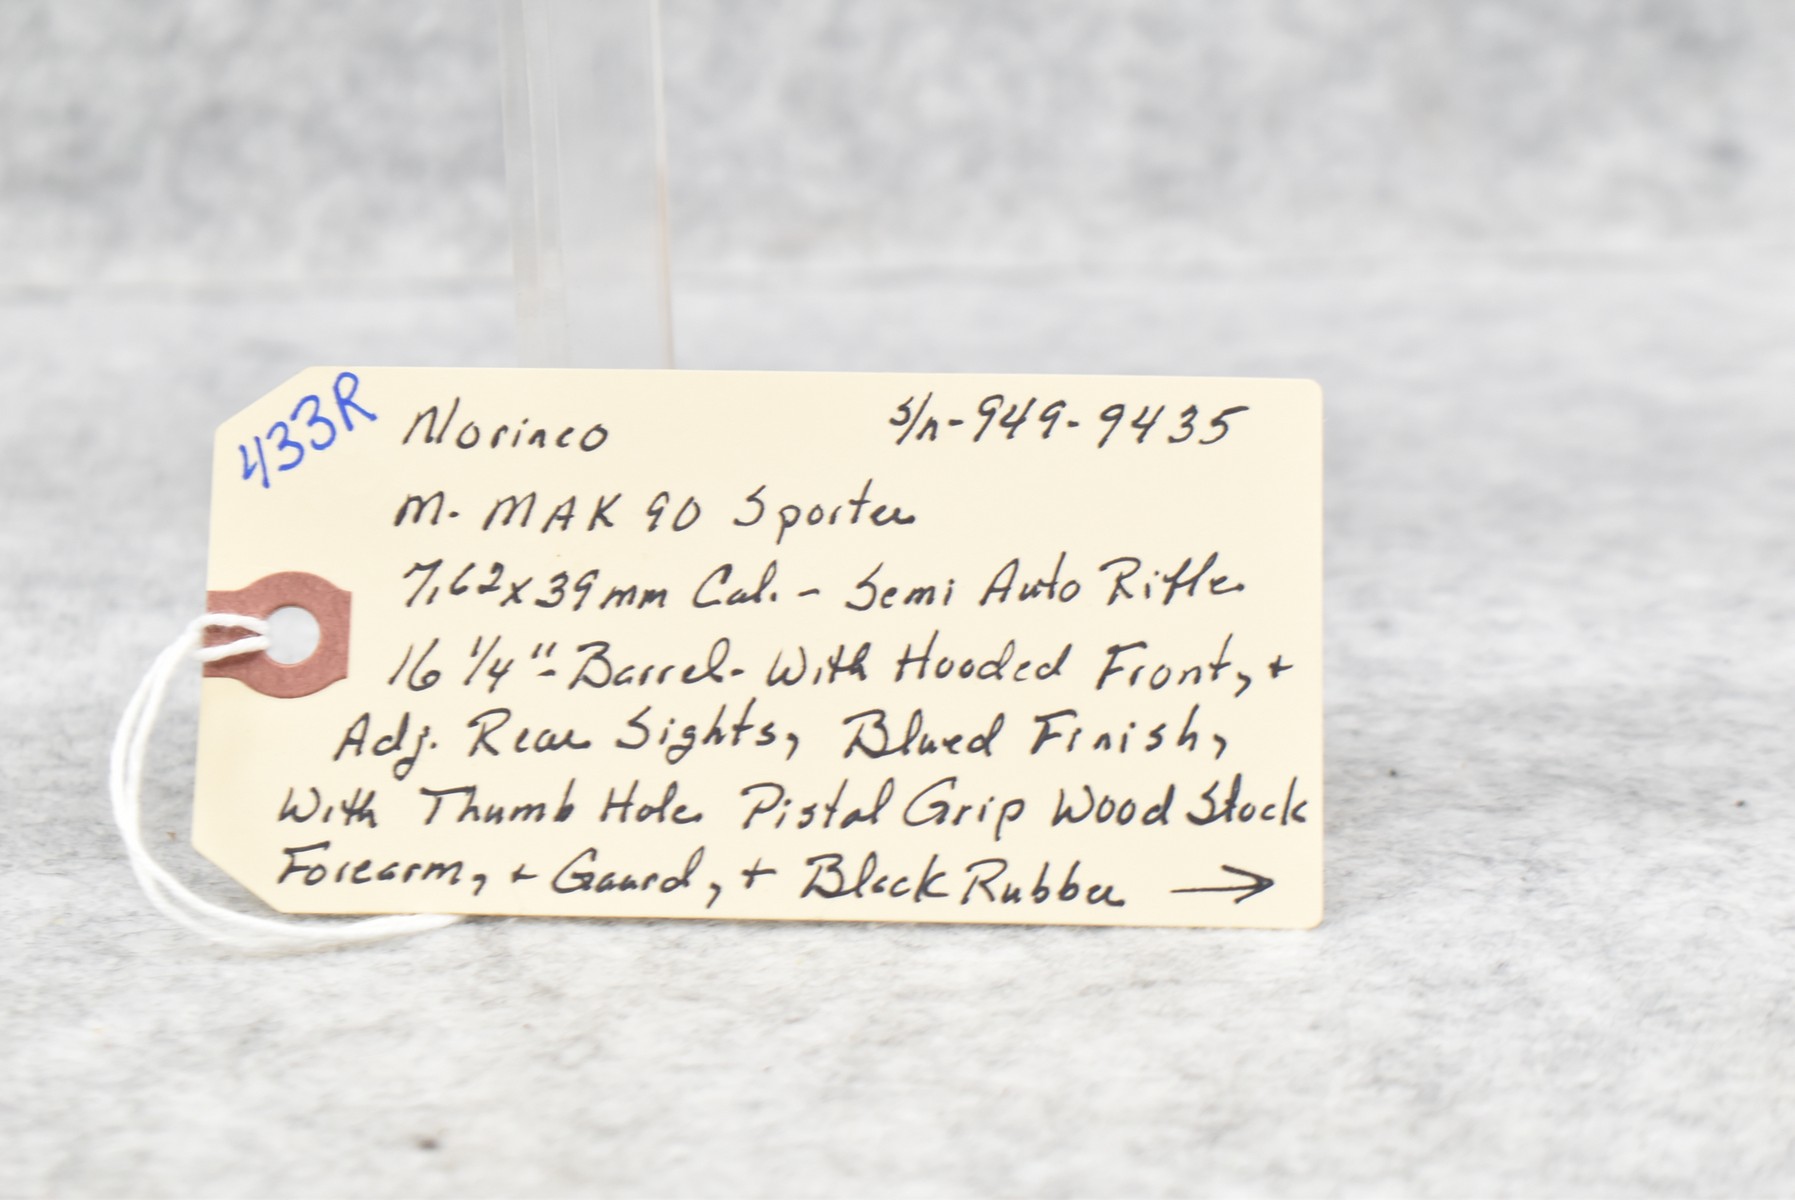 433R
Norinco s/n-949-9435
M. MAK 90 Sporter
7.62x39mm Cal. - Semi Auto Rifle
16 1/4" - Barrel - With Hooded Front, +
Adj. Rear Sights, Blued Finish,
With Thumb Hole Pistal Grip Wood Stock
Forearm, + Gaurd, + Black Rubber →